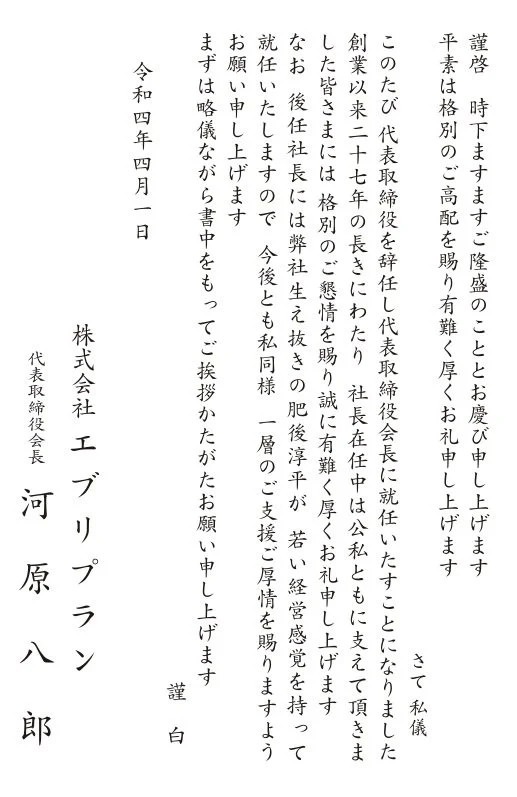 謹啓　時下ますますご隆盛のこととお慶び申し上げます
平素は格別のご高配を賜り有難く厚くお礼申し上げます
さて 私儀
このたび 代表取締役を辞任し代表取締役会長に就任いたすことになりました
創業以来二十七年の長きにわたり　社長在任中は公私ともに支えて頂きま
した皆さまには 格別のご懇情を賜り誠に有難く厚くお礼申し上げます
なお 後任社長には弊社生え抜きの肥後淳平が　若い経営感覚を持って
就任いたしますので　今後とも私同様　一層のご支援ご厚情を賜りますよう
お願い申し上げます
まずは略儀ながら書中をもってご挨拶かたがたお願い申し上げます
謹　白
令和四年四月一日
株式会社エブリプラン
代表取締役会長　河原八郎